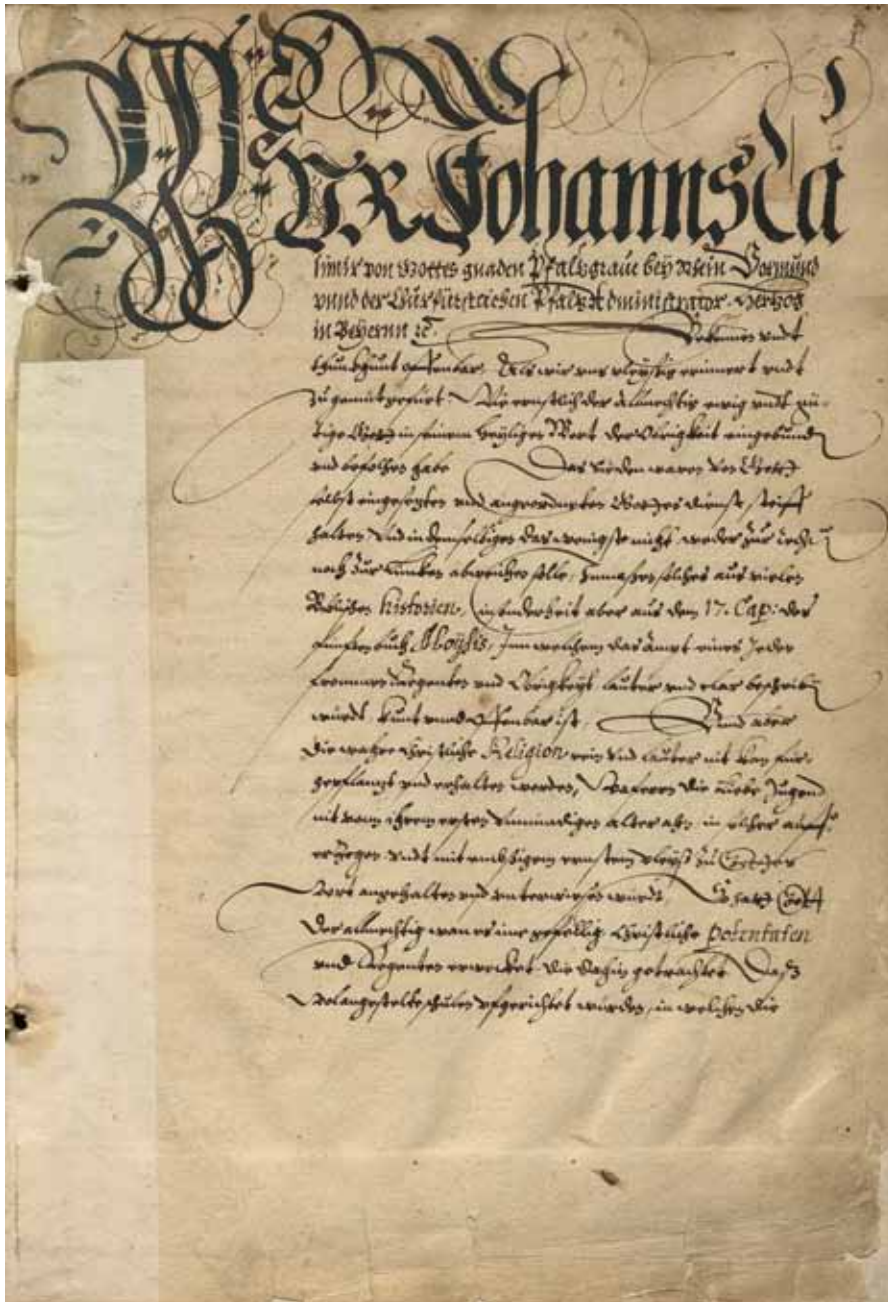 WIR Johanns Ca
simir von Gottes gnaden Pfaltzgraue bey Rhein Vormund
vnnd der Churfürstlichen Pfaltz Administrator, Hertzog
in Beyern ꝛc. Bekennen vndt
thun khunt offenbar, Als wir vns vleyssig erinnert vndt
zu gemüt gefürt, Wie ernstlich der Allmechtig ewig vndt gü-
tige Gott in seinem heyligen Wort der Obrigkeit eingebund
vnd befolhen habe Das sie den waren von Gott
selbst eingesetzten vnd angeordneten Gottes dienst, steiff
halten vnd in demselbigen das wenigste nicht, weder zur recht
noch zur Lincken abweichen solle, Inmassen solches aus vielen
Biblischen historien, insonderheit aber aus dem 17. Cap: des
fünften buch Moysis, Inn welchem das Ampt eines Jeden
frommen Regenten vnd Obrigkeyt, lauter vnd clar beschriben
würdt, kunt vnnd offenbar ist, Vnnd aber
die wahre Christliche Religion rein vnd lauter nit kan fur-
gepflantzt vnd erhalten werden, Woferen die Liebe Jugend
nit vonn ihrem ersten vnmündigen alter ahn, in solcher auff-
erzogen vndt mit embsigem ernstem vleyß zu Gottes
Wort angehalten vnd vnterwiesen würdt, So hatt Gott
der allmechtig wan es ime gefellig, Christliche potentaten
vnd Regenten erwecket, die dahin getrachtet Daß
Wolangestelte schulen vfgerichtet würden, in welchen die